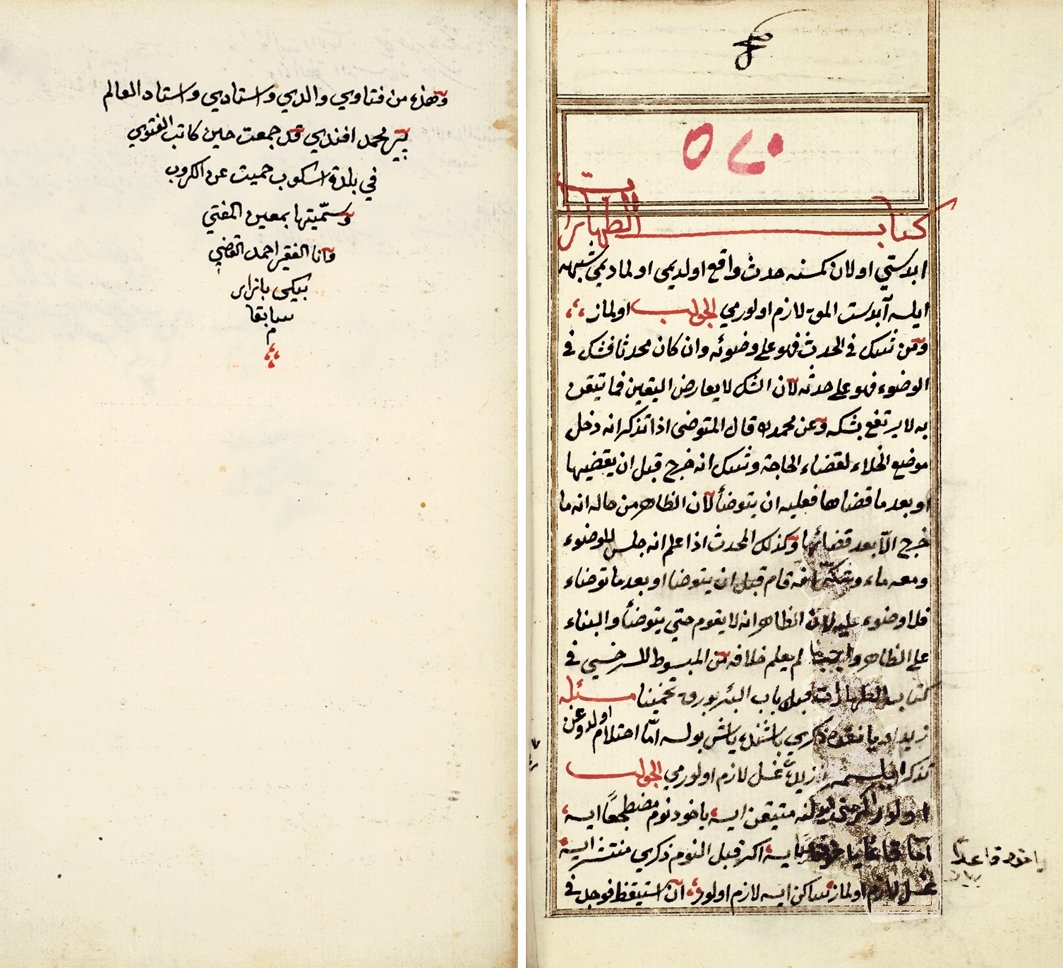 وهذه من فتاوي والدي واستادي واستاد العالم
پير محمد افندي قد جمعت حين كاتب الفتوي
في بلدة اسكوب حميت عن الكروب
وسميتها بمعين المفتي
وانا الفقير احمد القضي
بيكى بازار
سابقا
م
٥٢٠
كتاب الطهارات
ابدستي اولان كمسنه حدث واقع اولديمي اولماديمي شبهه
ايله آبدست المق لازم اولورمي الجواب اولماز
ومن شك في الحدث فهو على وضوئه وان كان محدثا فشك في
الوضوء فهو على حدثه لان الشك لا يعارض اليقين فما تيقن
به لا يرتفع بشكه وعن محمد قال المتوضى اذا تذكر انه دخل
موضع الخلاء لقضاء الحاجة وشك انه خرج قبل ان يقضيها
او بعد ما قضاها فعليه ان يتوضأ لان الظاهر من حاله انه ما
خرج الا بعد قضائها وكذلك المحدث اذا علم انه جلس للوضوء
ومعه ماء وشك انه قام قبل ان يتوضا او بعد ما توضاء
فلا وضوء عليه لان الظاهر انه لا يقوم حتي يتوضأ والبناء
على الظاهر واجب ما لم يعلم خلافه من المبسوط للسرخسي في
كتاب الطهارات قبيل باب البئر بورق تخمينا مسئله
زيد اوياندقده ذكري باشنده ياش بولسه امّا احتلام اولدوغن
تذكر ايلسه زيده غسل لازم اولورمي الجواب
اولور اكر متيقن ايسه ياخود نوم مضطجعًا ايسه
امّا قائما يا ايسه اكر قبل النوم ذكري منتشر ايسه
غسل لازم اولماز ساكن ايسه لازم اولور آن استيقظ فوجد في
ياخود قاعدًا